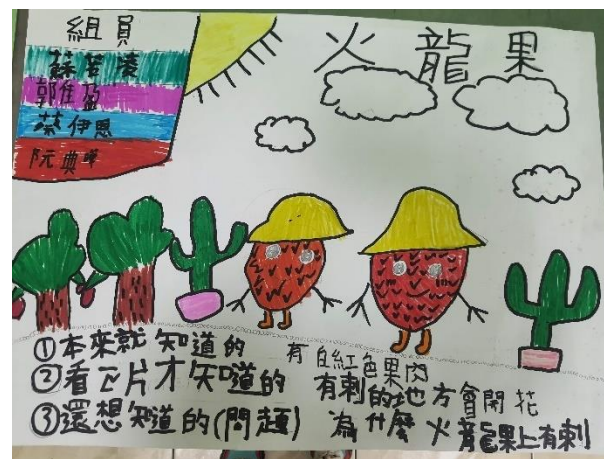 組員
郭佳盈
蔡伊恩
阮典
火龍果
①本來就知道的
有白紅色果肉
②看片才知道的
有刺的地方會開花
③還想知道的(問題)
為什麼火龍果上有刺